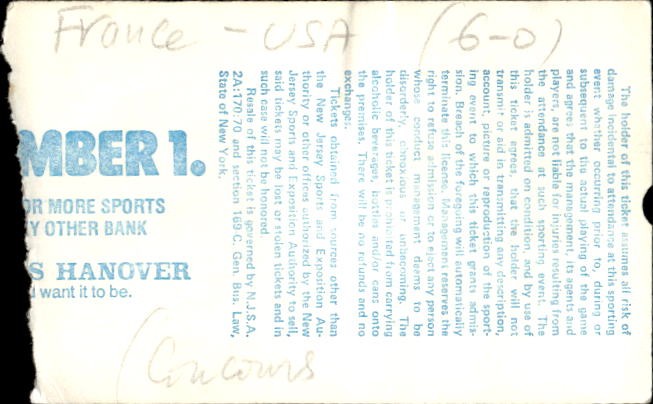 France - USA (6-0)
MBER 1.
OR MORE SPORTS
Y OTHER BANK
S HANOVER
want it to be.
(Concours
The holder of this ticket assumes all risk of
damage incidental to attendance at this sporting
event whether occurring prior to, during or
subsequent to the actual playing of the game
and agrees that the management, its agents and
players, are not liable for injuries resulting from
the attendance at such sporting event. The
holder is admitted on condition, and by use of
this ticket agrees, that the holder will not
transmit or aid in transmitting any description,
account, picture or reproduction of the sport-
ing event to which this ticket grants admis-
sion. Breach of the foregoing will automatically
terminate this license. Management reserves the
right to refuse admission or to eject any person
whose conduct management deems to be
disorderly, obnoxious or unbecoming. The
holder of this ticket is prohibited from carrying
alcoholic beverages, bottles and/or cans onto
the premises. There will be no refunds and no
exchanges.
Tickets obtained from sources other than
the New Jersey Sports and Exposition Au-
thority or other offices authorized by the New
Jersey Sports and Exposition Authority to sell,
said tickets may be lost or stolen tickets and in
such case will not be honored
Resale of this ticket is governed by N.J.S.A.
2A:170-70 and section 169 C. Gen. Bus. Law,
State of New York.